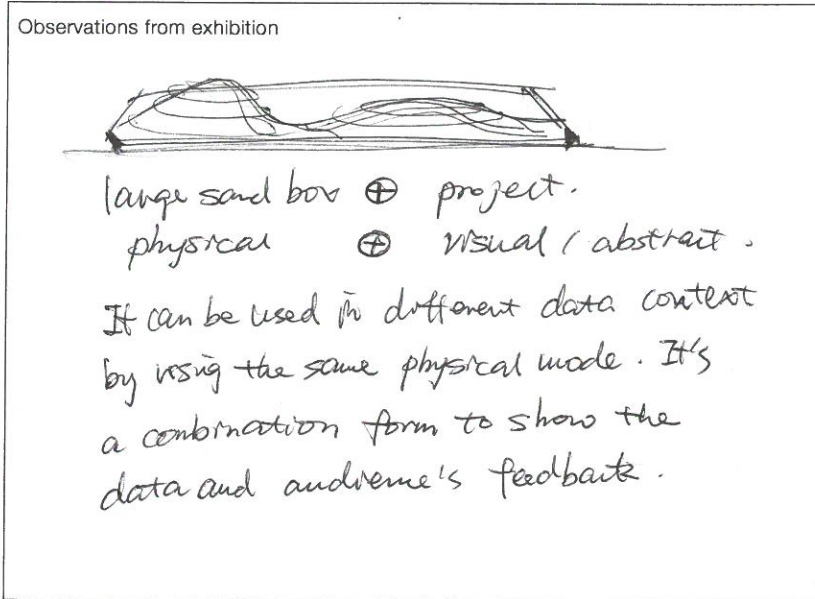 Observations from exhibition
large sand box ⊕ project.
physical ⊕ visual / abstract.
It can be used in different data context
by using the same physical mode. It's
a combination form to show the
data and audience's feedback.